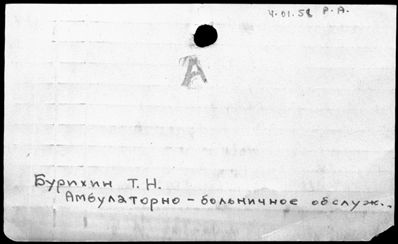 4.01.58 Р.А.
А
Бурихин Т.Н.
Амбулаторно-больничное обслуж..